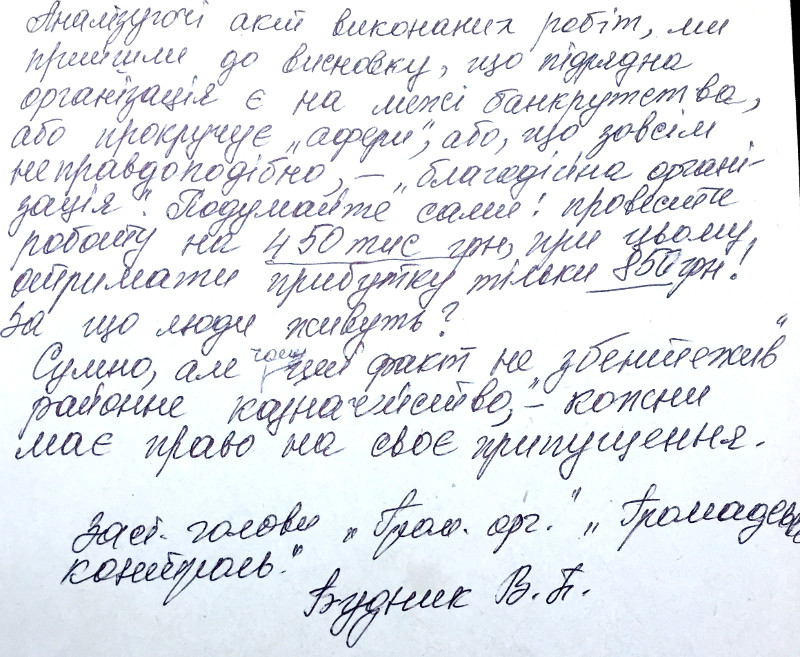 Аналізуючі акти виконаних робіт, ми
прийшли до висновку, що підрядна
організація є на межі банкрутства,
або прокручує „афери", або, що зовсім
неправдоподібно, – „благодійна органі-
зація". Подумайте сами! провести
роботу на 450 тис грн, при цьому,
отримати прибутку тільки 850 грн!
За що люди живуть?
Сумно, але чомусь цей факт не „збентежив"
районне казначейство, – кожен
має право на своє припущення.
Заст. голови „Гром. орг." „Громадськ
контроль."
Будник В. П.